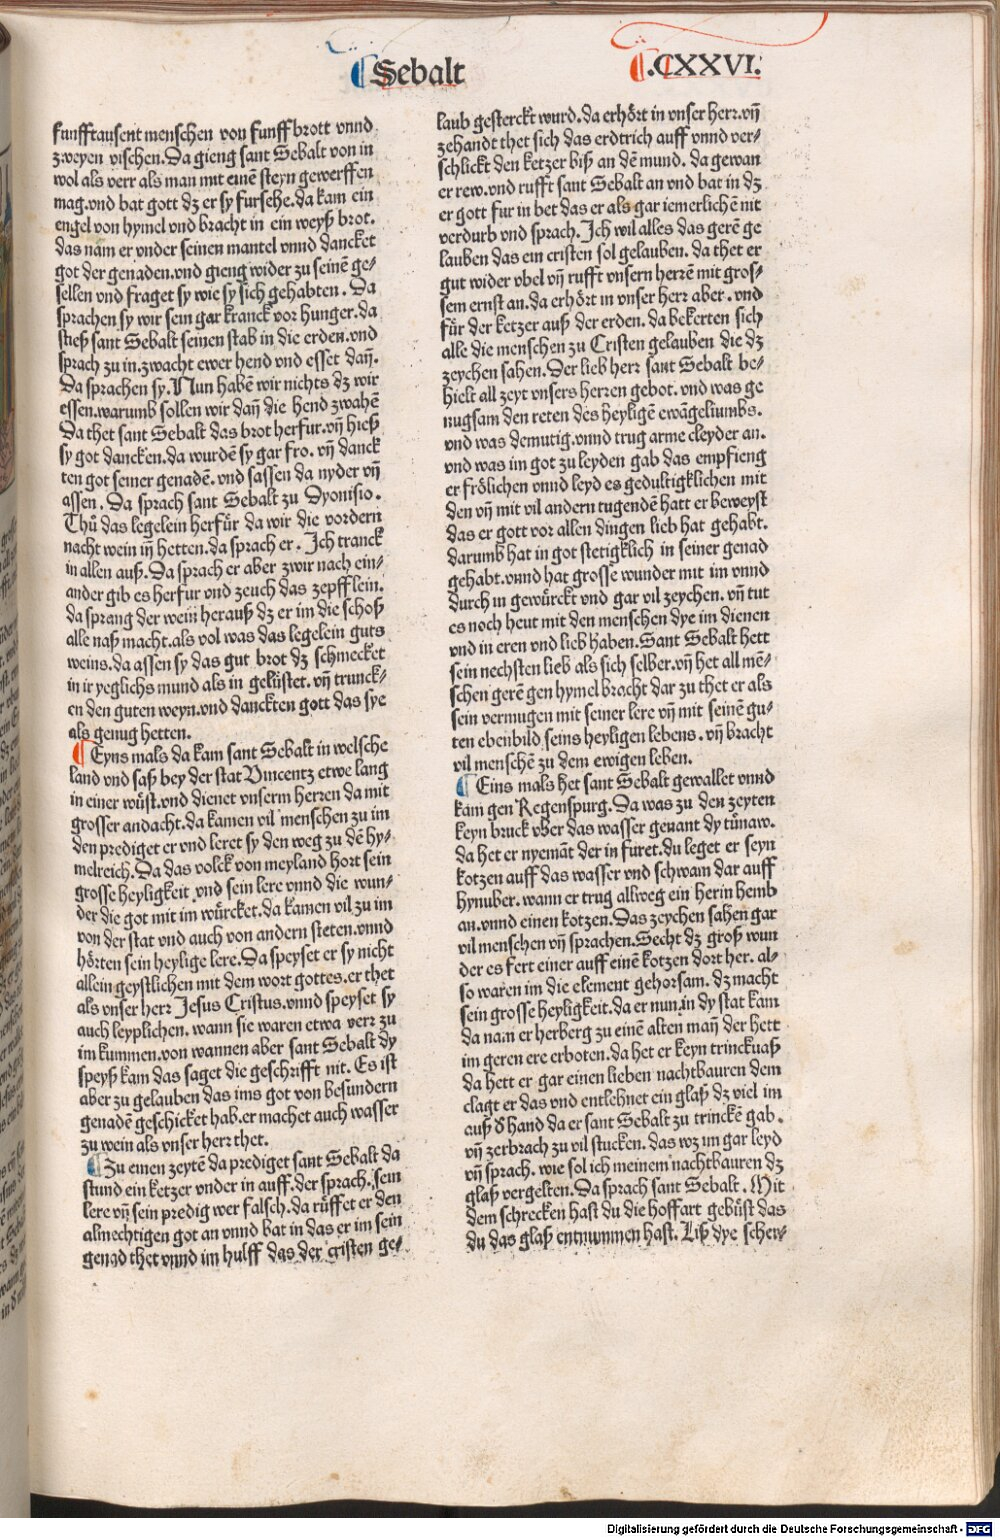 Sebalt
.CXXVI.
funfftausent menschen von funff brott vnnd
zweyen vischen. Da gieng sant Sebalt von in
wol als verr als man mit einē steyn gewerffen
mag. vnd bat gott dz er sy fursehe. da kam ein
engel von hymel vnd bracht in ein weyß brot.
das nam er vnder seinen mantel vnnd dancket
got der genaden. vnd gieng wider zu seinē ge⸗
sellen vnd fraget sy wie sy sich gehabten. Da
sprachen sy wir sein gar kranck vor hunger. da
stieß sant Sebalt seinen stab in die erden. vnd
sprach zu in. zwacht ewer hend vnd esset dañ.
Da sprachen sy. Nun habē wir nichts dz wir
essen. warumb sollen wir dañ die hend zwahē
Da thet sant Sebalt das brot herfur. vñ hieß
sy got dancken. da wurdē sy gar fro. vñ danck
ten got seiner genadē. vnd sassen da nyder vñ
assen. Da sprach sant Sebalt zu Dyonisio.
Thů das legelein herfür da wir die vordern
nacht wein iñ hetten. da sprach er. Ich tranck
in allen auß. Da sprach er aber zwir nach ein⸗
ander gib es herfur vnd zeuch das zepfflein.
da sprang der wein herauß dz er im die schoß
alle naß macht. als vol was das legelein guts
weins. da assen sy das gut brot dz schmecket
in ir yeglichs mund als in gelüstet. vñ trunck⸗
en den guten weyn. vnd danckten gott das sye
als genug hetten.
Eyns mals da kam sant Sebalt in welsche
land vnd saß bey der stat Vincentz etwe lang
in einer wüst. vnd dienet vnserm herren da mit
grosser andacht. da kamen vil menschen zu im
den prediget er vnd leret sy den weg zu dē hy⸗
melreich. Da das volck von meyland hort sein
grosse heyligkeit vnd sein lere vnnd die wun⸗
der die got mit im würcket. da kamen vil zu im
von der stat vnd auch von andern steten. vnnd
hörten sein heylige lere. Da speyset er sy nicht
allein geystlichen mit dem wort gottes. er thet
als vnser herr Jesus Cristus. vnnd speyset sy
auch leyplichen. wann sie waren etwa verr zu
im kummen. von wannen aber sant Sebalt dy
speyß kam das saget die geschrifft nit. Es ist
aber zu gelauben das ims got von besundern
genadē geschicket hab. er machet auch wasser
zu wein als vnser herr thet.
Zu einen zeytē da prediget sant Sebalt da
stund ein ketzer vnder in auff. der sprach. sein
lere vñ sein predig wer falsch. da rüffet er den
almechtigen got an vnnd bat in das er im sein
genad thet vnnd im hulff das der cristen ge⸗
laub gesterckt wurd. da erhört in vnser herr. vñ
zehandt thet sich das erdtrich auff vnnd ver⸗
schlickt den ketzer biß an dē mund. da gewan
er rew. vnd rufft sant Sebalt an vnd bat in dz
er gott fur in bet das er als gar iemerlichē nit
verdurb vnd sprach. Ich wil alles das gerē ge
lauben das ein cristen sol gelauben. da thet er
gut wider vbel vñ rufft vnsern herrē mit gros⸗
sem ernst an. da erhört in vnser herr aber. vnd
für der ketzer auß der erden. da bekerten sich
alle die menschen zu Cristen gelauben die dz
zeychen sahen. Der lieb herr sant Sebalt be⸗
hielt all zeyt vnsers herren gebot. vnd was ge
nugsam den reten des heyligē ewāgeliumbs.
vnd was demutig. vnnd trug arme cleyder an.
vnd was im got zu leyden gab das empfieng
er frölichen vnnd leyd es gedultigklichen mit
den vñ mit vil andern tugendē hatt er beweyst
das er gott vor allen dingen lieb hat gehabt.
darumb hat in got stetigklich in seiner genad
gehabt. vnnd hat grosse wunder mit im vnnd
durch in gewürckt vnd gar vil zeychen. vñ tut
es noch heut mit den menschen dye im dienen
vnd in eren vnd lieb haben. Sant Sebalt hett
sein nechsten lieb als sich selber. vñ het all mē⸗
schen gerē gen hymel bracht dar zu thet er als
sein vermugen mit seiner lere vñ mit seinē gu⸗
ten ebenbild seins heyligen lebens. vñ bracht
vil menschē zu dem ewigen leben.
Eins mals het sant Sebalt gewallet vnnd
kam gen Regenspurg. Da was zu den zeyten
keyn bruck vber das wasser genant dy tůnaw.
da het er nyemāt der in furet. du leget er seyn
kotzen auff das wasser vnd schwam dar auff
hynuber. wann er trug allweg ein herin hemb
an. vnnd einen kotzen. Das zeychen sahen gar
vil menschen vñ sprachen. Secht dz groß wun
der es fert einer auff einē kotzen dort her. al⸗
so waren im die element gehorsam. dz macht
sein grosse heyligkeit. da er nun in dy stat kam
da nam er herberg zu einē alten mañ der hett
im geren ere erboten. da het er keyn trinckuaß
da hett er gar einen lieben nachtbauren dem
clagt er das vnd entlehnet ein glaß dz viel im
auß ð hand da er sant Sebalt zu trinckē gab.
vñ zerbrach zu vil stucken. das wz im gar leyd
vñ sprach. wie sol ich meinem nachtbauren dz
glaß vergelten. Da sprach sant Sebalt. Mit
dem schrecken hast du die hoffart gebüst das
du das glaß entnummen hast. Liß dye scher⸗
Digitalisierung gefördert durch die Deutsche Forschungsgemeinschaft - DFG